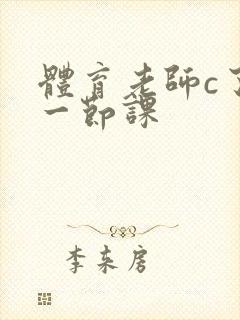 體育老師c了
一節課
李束房